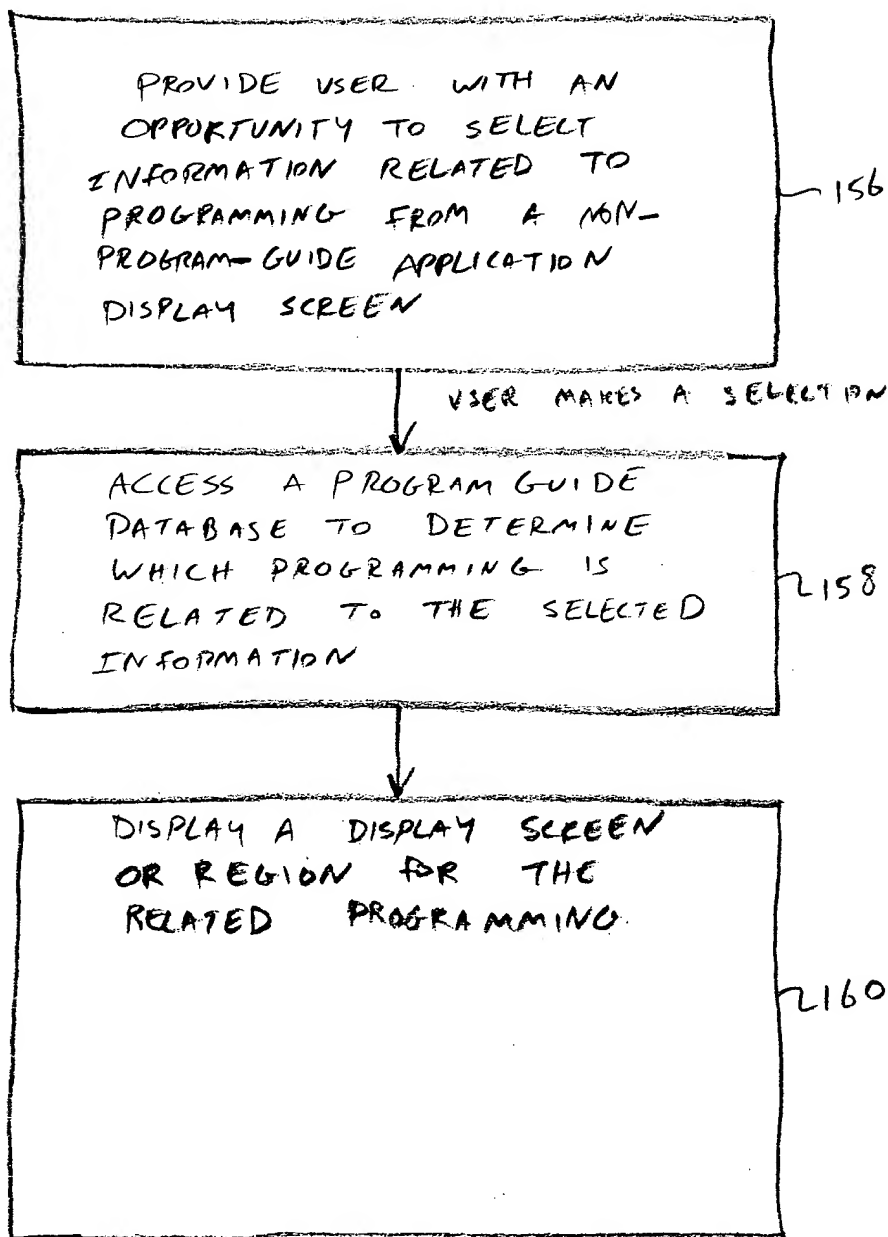 PROVIDE USER WITH AN
OPPORTUNITY TO SELECT
INFORMATION RELATED TO
PROGRAMMING FROM A NON-
PROGRAM-GUIDE APPLICATION
DISPLAY SCREEN
156
USER MAKES A SELECTION
ACCESS A PROGRAM GUIDE
DATABASE TO DETERMINE
WHICH PROGRAMMING IS
RELATED TO THE SELECTED
INFORMATION
158
DISPLAY A DISPLAY SCREEN
OR REGION FOR THE
RELATED PROGRAMMING.
160